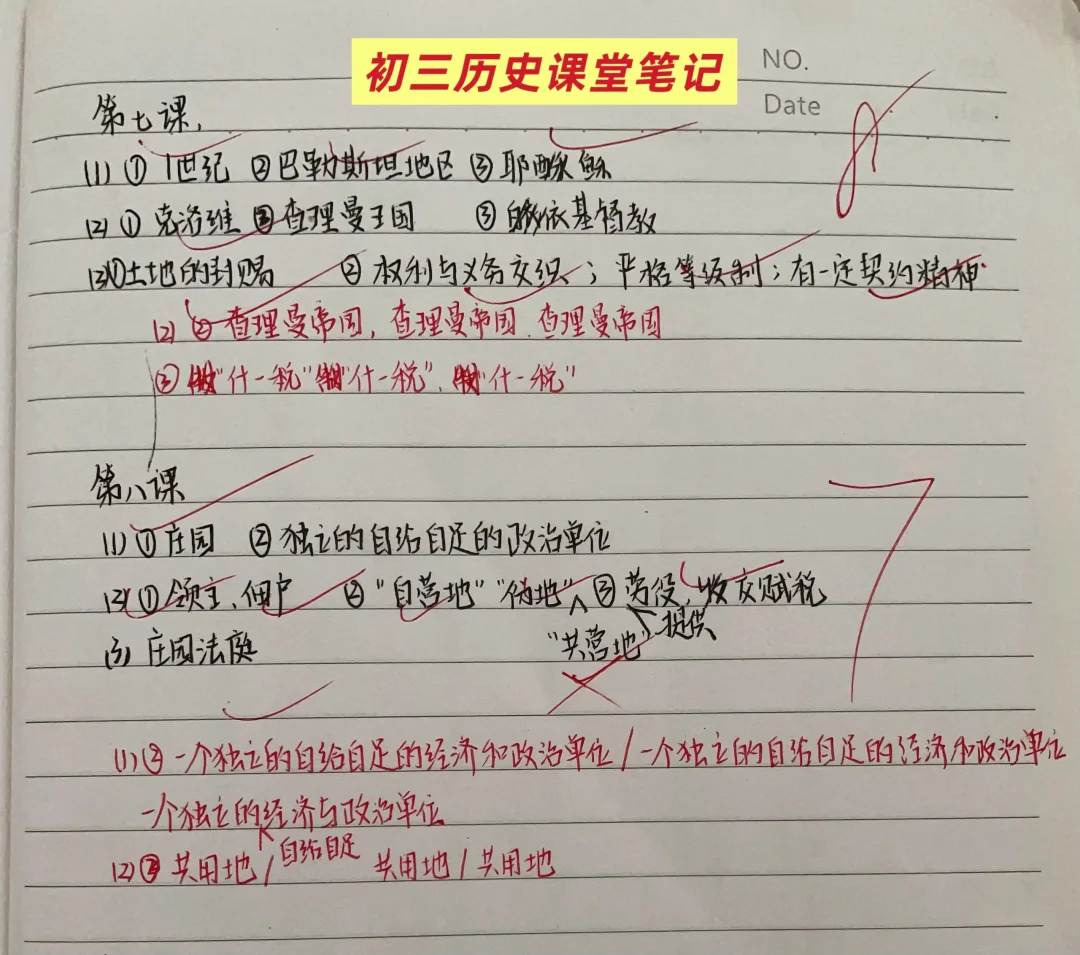 初三历史课堂笔记
NO.
Date
第七课,
(1) ① 1世纪 ②巴勒斯坦地区 ③耶稣
(2) ① 克洛维 ②查理曼王国 ③皈依基督教
(3)①土地的封赐 ② 权利与义务交织;严格等级制;有一定契约精神
(2) ② 查理曼帝国,查理曼帝国.查理曼帝国
③ "什一税""什一税"."什一税"
第八课
(1) ①庄园 ②独立的自给自足的政治单位
(2) ① 领主、佃户 ②"自营地""份地"∧③劳役,提供交赋税
"共营地"
(3) 庄园法庭
(1)② 一个独立的自给自足的经济和政治单位/一个独立的自给自足的经济和政治单位
一个独立的经济与政治单位
自给自足
(2)② 共用地/共用地/共用地